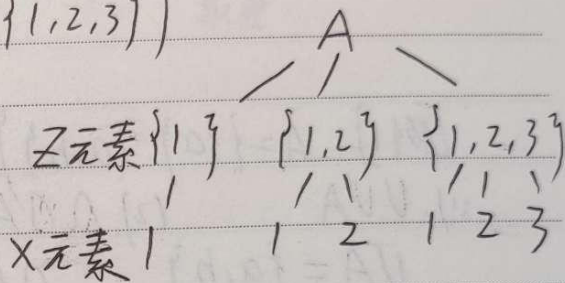 {1,2,3})
A
Z元素 {1} {1,2} {1,2,3}
X元素 1 1 2 1 2 3